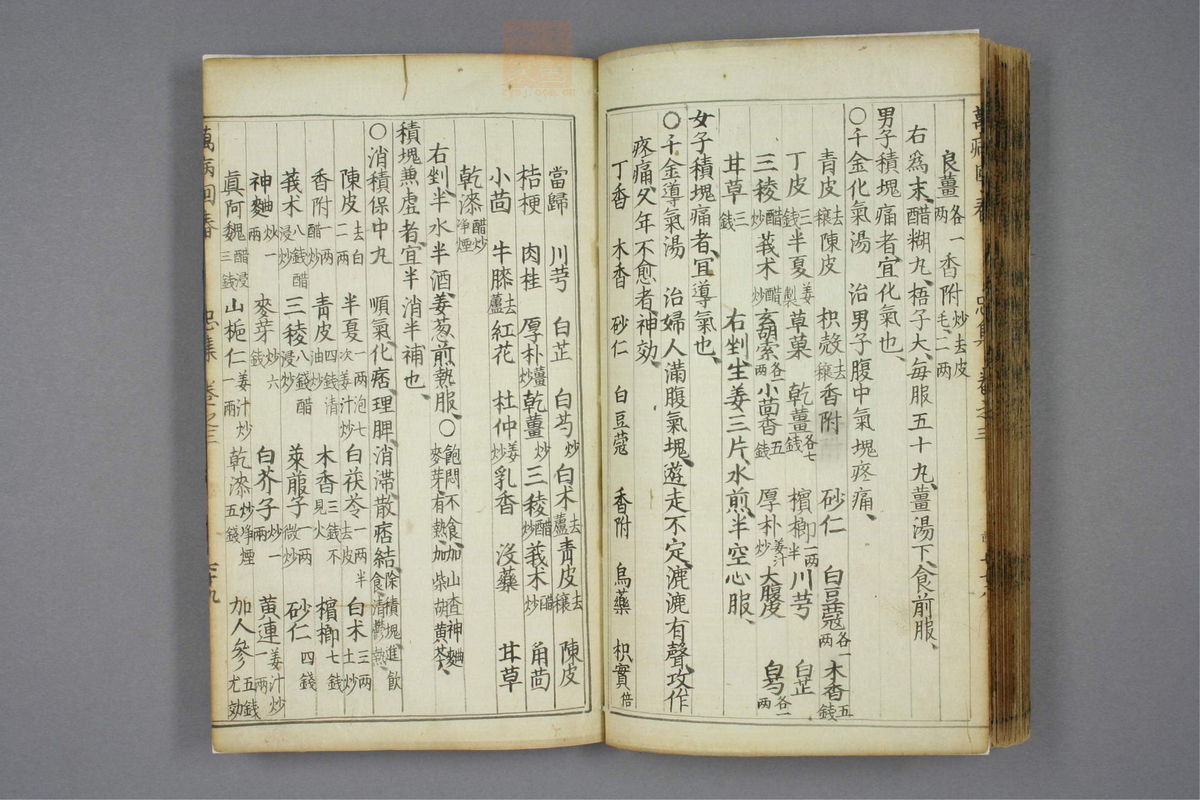 良薑各一兩 香附炒去皮毛二兩
右爲末醋糊丸梧子大每服五十丸薑湯下食前服
男子積塊痛者宜化氣也
○千金化氣湯 治男子腹中氣塊疼痛
青皮去穰 陳皮 枳殼去穰 香附 砂仁 白豆蔻各一兩 木香五錢
丁皮三錢 半夏姜製 草菓 乾薑各七錢 檳榔一兩半 川芎 白芷
三稜醋炒 莪术醋炒 玄胡索各一兩 小茴香五錢 厚朴姜汁炒 大腹皮 白芍各一兩
甘草三錢 右剉生姜三片水煎半空心服
女子積塊痛者宜導氣也
○千金導氣湯 治婦人滿腹氣塊遊走不定漉漉有聲攻作
疼痛久年不愈者神効
丁香 木香 砂仁 白豆蔻 香附 烏藥 枳實倍
當歸 川芎 白芷 白芍炒 白术去蘆 青皮去穰 陳皮
桔梗 肉桂 厚朴薑炒 乾薑炒 三稜醋炒 莪术醋炒 角茴
小茴 牛膝去蘆 紅花 杜仲姜炒 乳香 沒藥 甘草
乾漆醋炒淨煙
右剉半水半酒姜葱煎熱服○飽悶不食加山查神麯麥芽有熱加柴胡黃芩
積塊兼虛者宜半消半補也
○消積保中丸 順氣化痞理脾消滯散痞結除積塊進飲食清鬱熱
陳皮去白二兩 半夏一兩泡七次姜汁炒 白茯苓一兩半去皮 白术三兩土炒
香附一兩醋炒 青皮四錢清油炒 木香三錢不見火 檳榔七錢
莪术八錢醋浸炒 三稜八錢醋浸炒 萊菔子一兩微炒 砂仁四錢
神麯炒一兩 麥芽炒六錢 白芥子炒一兩 黃連一兩姜汁炒
眞阿魏醋浸三錢 山梔仁姜汁炒一兩 乾漆炒淨煙五錢 加人參五錢尤効
萬病回春 忠集 卷之三